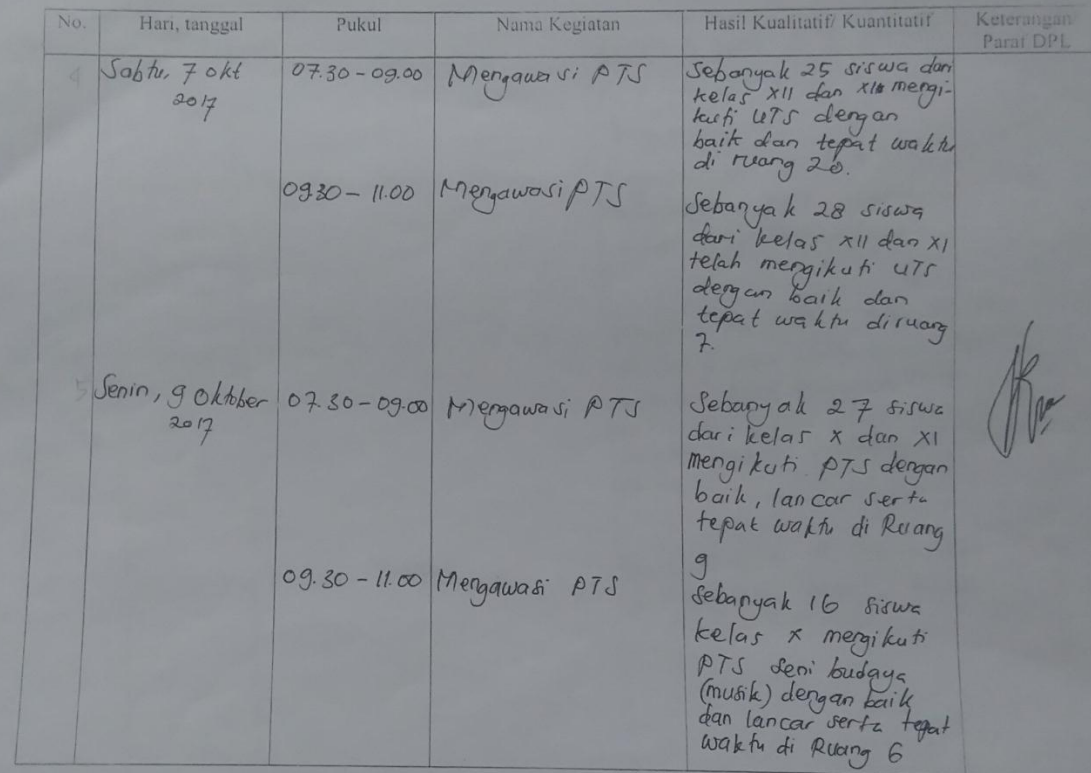 No. Hari, tanggal Pukul Nama Kegiatan Hasil Kualitatif/ Kuantitatif Keterangan
Paraf DPL
4 Sabtu, 7 okt 07.30 - 09.00 Mengawasi PTS Sebanyak 25 siswa dari
2017 kelas XII dan XI mengi-
kuti UTS dengan
baik dan tepat waktu
di ruang 20.
09.30 - 11.00 Mengawasi PTS Sebanyak 28 siswa
dari kelas XII dan XI
telah mengikuti UTS
dengan baik dan
tepat waktu diruang
7.
5 Senin, 9 Oktober 07.30 - 09.00 Mengawasi PTS Sebanyak 27 siswa
2017 dari kelas X dan XI
mengikuti PTS dengan
baik, lancar serta
tepat waktu di Ruang
9
09.30 - 11.00 Mengawasi PTS Sebanyak 16 siswa
kelas X mengikuti
PTS seni budaya
(musik) dengan baik
dan lancar serta tepat
waktu di Ruang 6